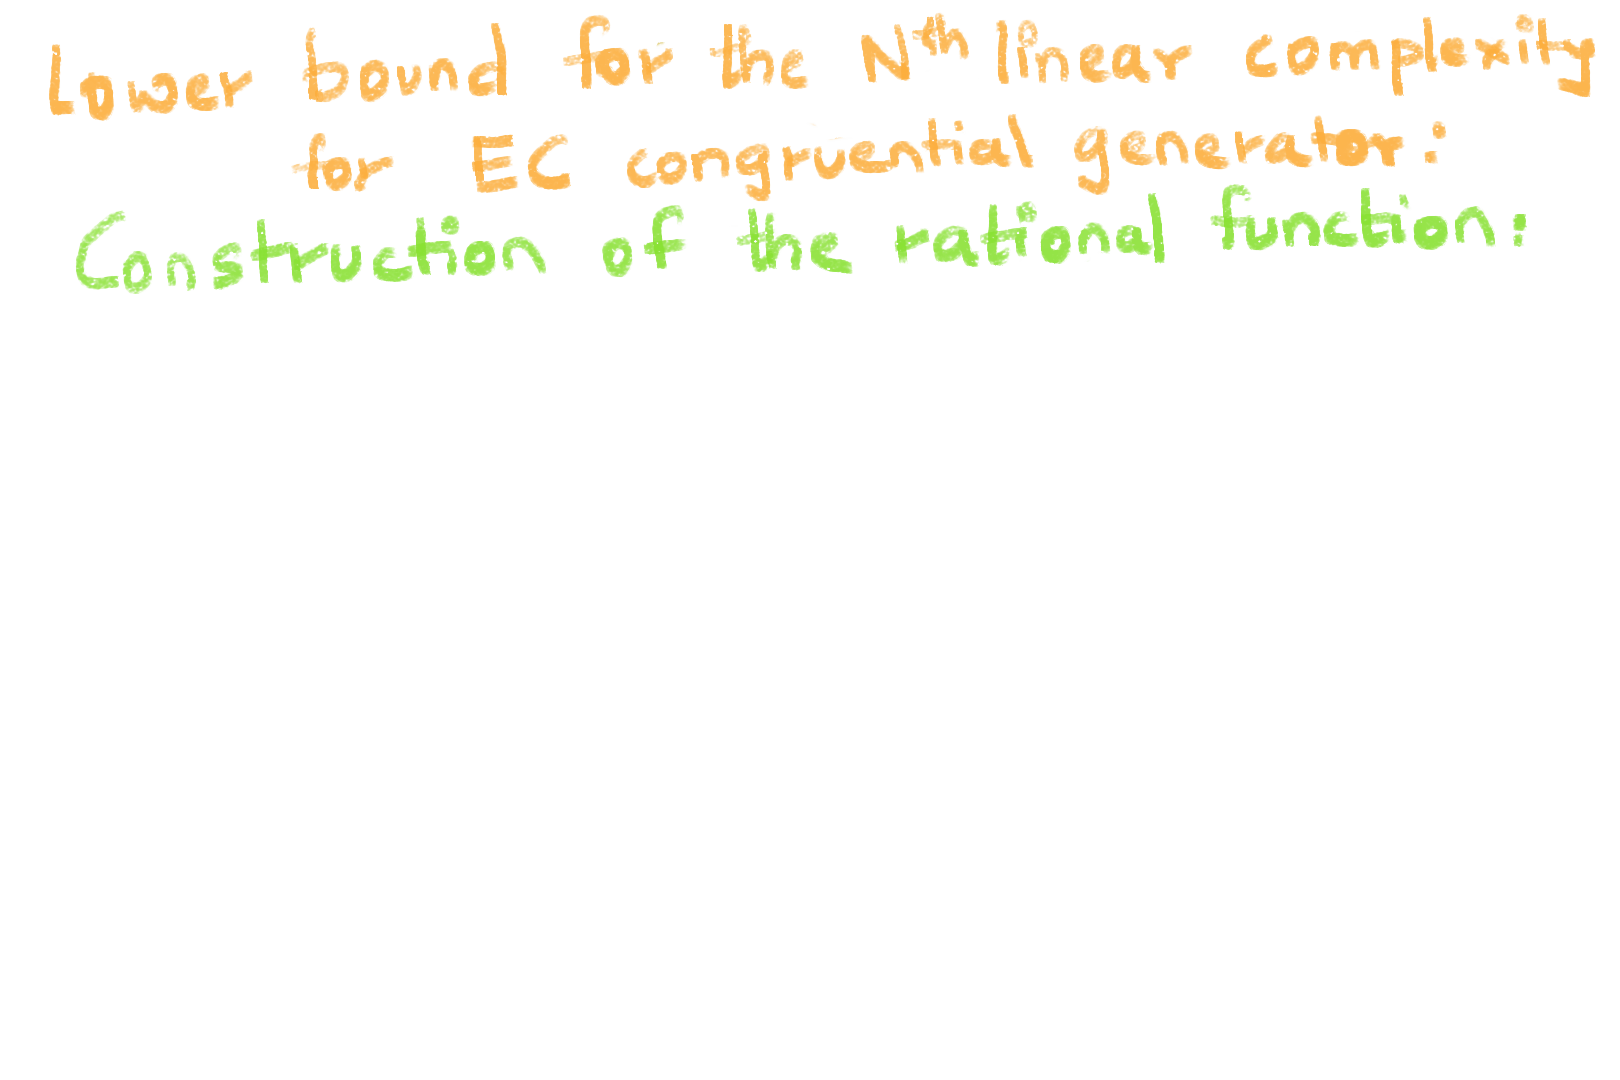 Lower bound for the Nth linear complexity
for EC congruential generator:
Construction of the rational function: